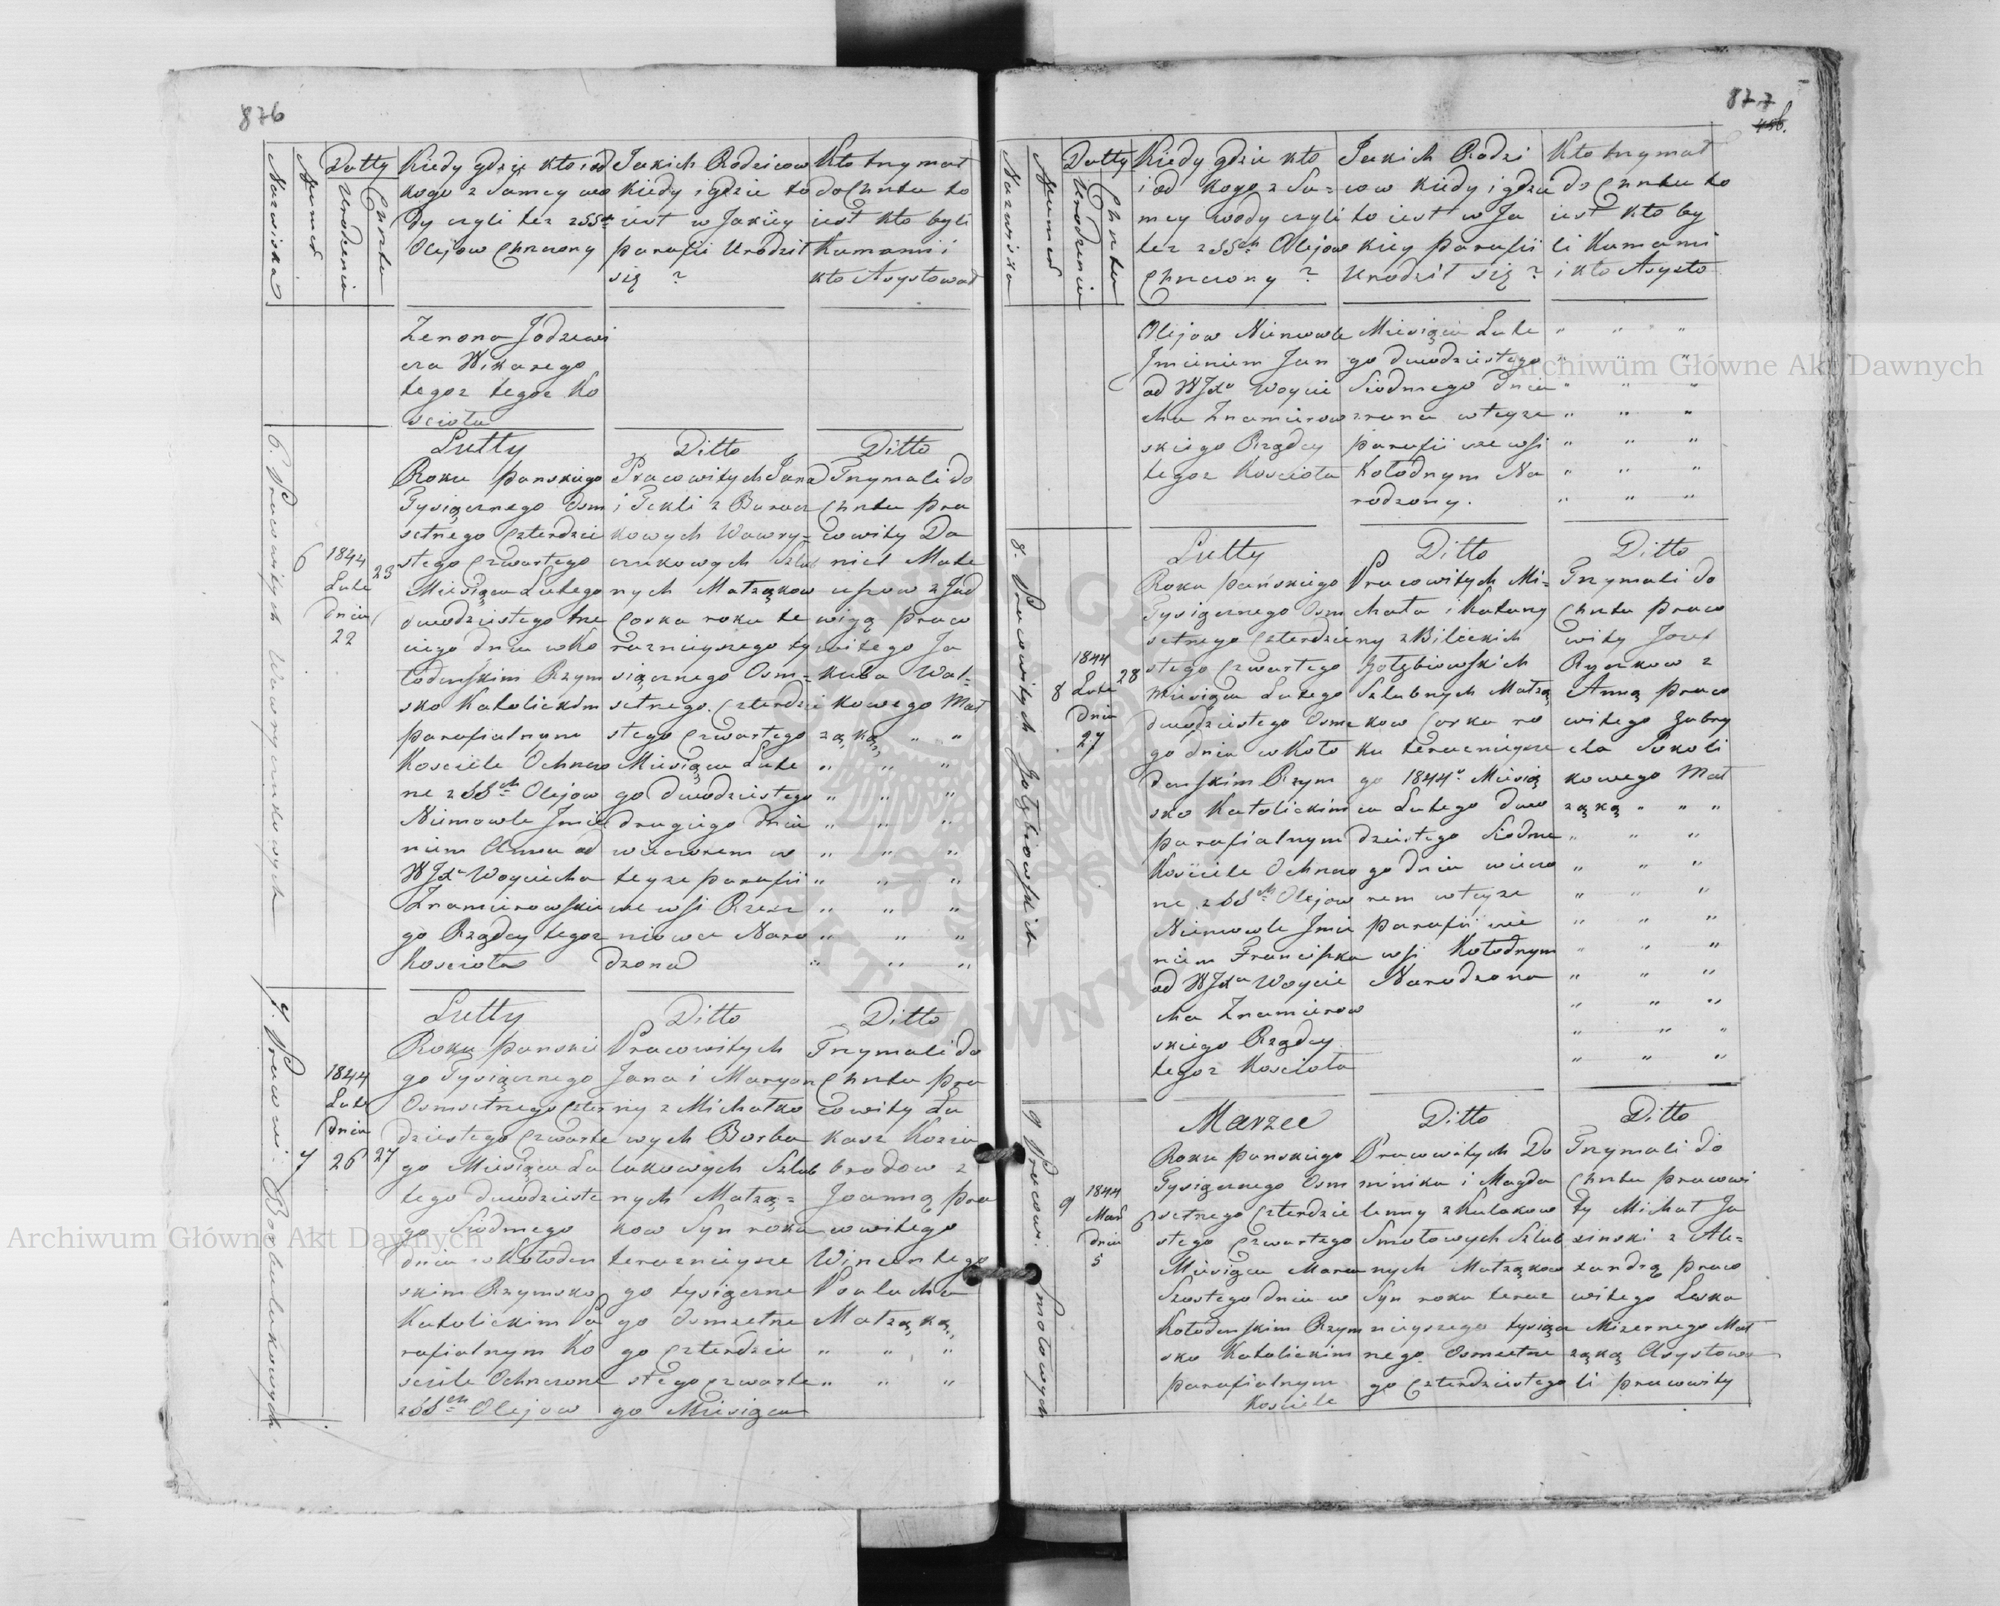 876
Nazwiska
Numer
Datty
Urodzenia
Chrztu
Kiedy gdzie kto i od
kogo z Samey wo
dy czyli tez z SSch
Olejow Chrzcony
Jakich Rodzicow
kiedy i gdzie to
iest w Jakiey
parafii Urodził
się ?
Kto trzymał
do Chrztu to
iest kto byli
Kumami i
kto Asystował
Zenona Jodzewi
cza Wikarego
tegoz tegoz Ko
scioła
6. Pracowitych Wawrynczukowych
6
1844
Lute
Dnia
22
23
Lutty
Roku Panskiego
Tysiącznego Osm
setnego Czterdzie
stego Czwartego
Miesiąca Lutego
dwudziestego trze
ciego dnia w Ko
łodenskim Rzym
sko Katolickim
parafialnym
Kosciele Ochrzco
ne z SSch Olejow
Niemowle Jmie
niem Anna od
WJXa Woyciecha
Znamierowskie
go Rządcy tegoz
Koscioła
Ditto
Pracowitych Jana
i Tekli z Baracz
kowych Wawry=
czukowych Szlub
nych Małżąkow
Corka roku te
raznieyszego ty
siącznego Osm=
setnego Czterdzie
stego Czwartego
Miesiąca Lute
go dwudziestego
drugiego dnia
wieczorem w
teyze parafii
we wsi Rzesz
niowce Naro
dzona
Ditto
Trzymali do
Chrztu pra
cowity Da
niel Mate
uszow z Jad
wigą praco
witego Ja
kuba Wal=
kowego Mał
żąką " "
7. Pracowi: Borbulakowych.
7
1844
Lute
Dnia
26
27
Lutty
Roku Panskie
go Tysiącznego
Osmsetnego Czter
dziestego Czwarte
go Miesiąca Lu
tego dwudzieste
go Siodmego
dnia w Kołoden
skim Rzymsko
Katolickim Pa
rafialnym Ko
sciele Ochrzcone
z SSch Olejow
Ditto
Pracowitych
Jana i Maryan
ny z Michałko
wych Borbu
lakowych Szlub
nych Małżą=
kow Syn roku
teraznieysze
go tysiączne
go Osmsetne
go Czterdzie
stego czwarte
go Miesiąca
Ditto
Trzymali do
Chrztu pra
cowity Łu
kasz Kozia
brodow z
Joanną pra
cowitego
Wincentego
Małżąką
877
Nazwiska
Numer
Datty
Urodzenia
Chrztu
Kiedy gdzie kto
i od kogo z Sa=
mey wody czyli
tez z SSch Olejow
Chrzcony ?
Jakich Rodzi
cow kiedy i gdzie
to iest w Ja
kiey parafii
Urodził się ?
Kto trzymał
do Chrztu to
iest kto by
li Kumami
i kto Asysto
Olejow Niemowle
Jmieniem Jan
od WJXa Woycie
cha Znamierow
skiego Rządcy
tegoz Koscioła
Miesiąca Lute
go dwudziestego
Siodmego dnia
zrana w teyze
parafii we wsi
Kołodnym Na
rodzony.
8. Pracowitych Gołębiowskich
8
1844
Lute
Dnia
27
28
Lutty
Roku Pańskiego
Tysiącznego Osm
setnego Czterdzie
stego Czwartego
Miesiąca Lutego
dwudziestego Osme
go dnia w Koło
denskim Rzym
sko Katolickim
parafialnym
Kościele Ochrzco
ne z SSch Olejow
Niemowle Jmie
niem Franciszka
od WJXa Woycie
cha Znamierow
skiego Rządcy
tegoz Koscioła
Ditto
Pracowitych Mi=
chała i Katarzy
ny z Bilickich
Gołębiowskich
Szlubnych Małżą
kow Corka ro
ku teraznieysze
go 1844o Miesią
ca Lutego dwu
dziestego Siodme
go dnia wieczo
rem w teyze
parafii we
wsi Kołodnym
Narodzona
Ditto
Trzymali do
Chrztu praco
wity Jozef
Ryczkow z
Anną praco
witego Gabry
ela Sokoli
kowego Mał
żąką " " "
9 Pracow: Smołowych
9
1844
Mar
Dnia
5
6
Marzec
Roku Panskiego
Tysiącznego Osm
setnego Czterdzie
stego Czwartego
Miesiąca Marca
Szostego dnia w
Kołodenskim Rzym
sko Katolickim
parafialnym
Kościele
Ditto
Pracowitych Do
minika i Magda
lenny z Kulakow
Smołowych Szlub
nych Małżąkow
Syn roku teraz
nieyszego tysiącz
nego Osmsetne
go Czterdziestego
Ditto
Trzymali do
Chrztu pracowi
ty Michał Ja
sinski z Ale=
xandrą praco
witego Leska
Mizernego Mał
żąką Asystowa
li pracowity
Archiwum Główne Akt Dawnych
Archiwum Główne Akt Dawnych